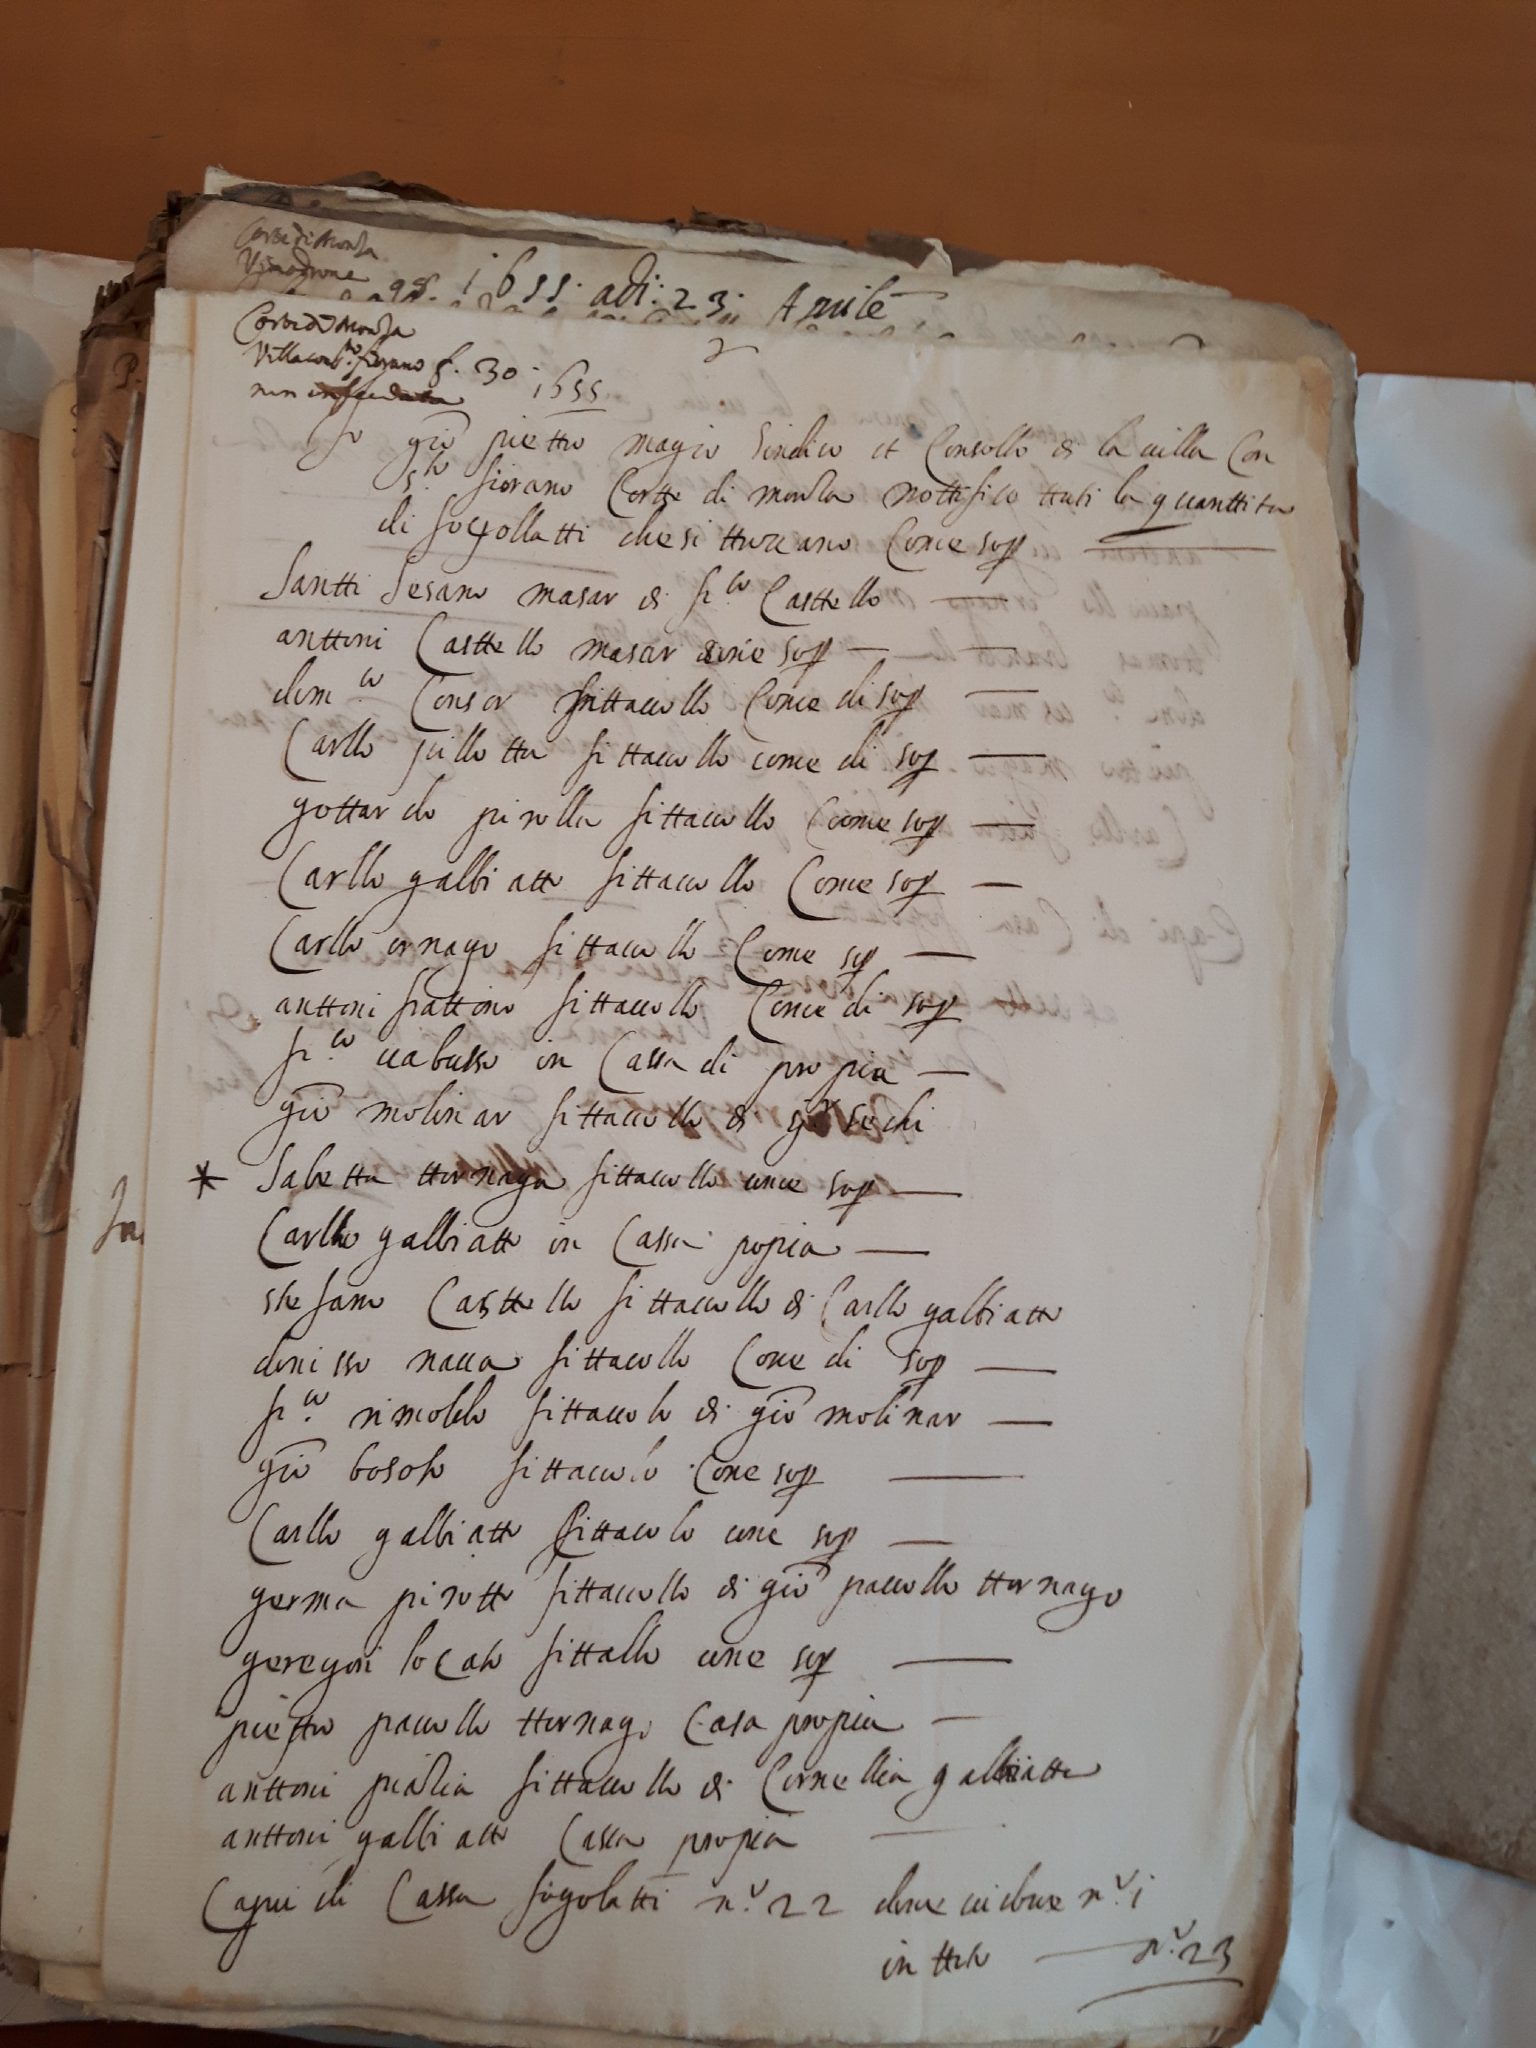 Corte di Monza
Vimodrone
98. 1655. adi: 23: Aprile
Corte di Monza
Villa con s.to fiorano f. 30.
non infeudata
1655
Io giõ piettro magio Sindico et Consollo di la villa Con
s.to fiorano Cortte di monza nottifico tutti la quanttita
di focollatti che si ttrovano Come sop
Santti Sesano masar di fr.co Casttello
anttoni Casttello masar come sop
dom.co Consor fittavollo Come di sop
Carllo pillotta fittavollo come di sop
gottardo pirolla fittavollo Come sop
Carllo galbiatto fittavollo Come sop
Carllo ornago fittavollo Come sop
anttoni frattino fittavollo Come di sop
fr.co vabusso in Cassa di propia
giõ molinar fittavollo di giõ sechi
* Sabetta ttornaga fittavollo come sop
Carllo galbiatto in Cassa propia
stefano Casttello fittavollo di Carllo galbiatto
donisso nava fittavollo Come di sop
fr.co rimoldo fittavolo di giõ molinar
giõ bosoto fittavolo Come sop
Carllo galbiatto fittavolo come sop
germa pirotto fittavollo di giõ pavollo ttornago
geregori locato fittallo come sop
piettro pavollo ttornago Casa propia
anttoni fittavollo di Cornellia galbiatto
anttoni galbiatto Cassa propia
Capi di Cassa fogolatti n.o 22 done vidove n.o 1
in tto n.o 23